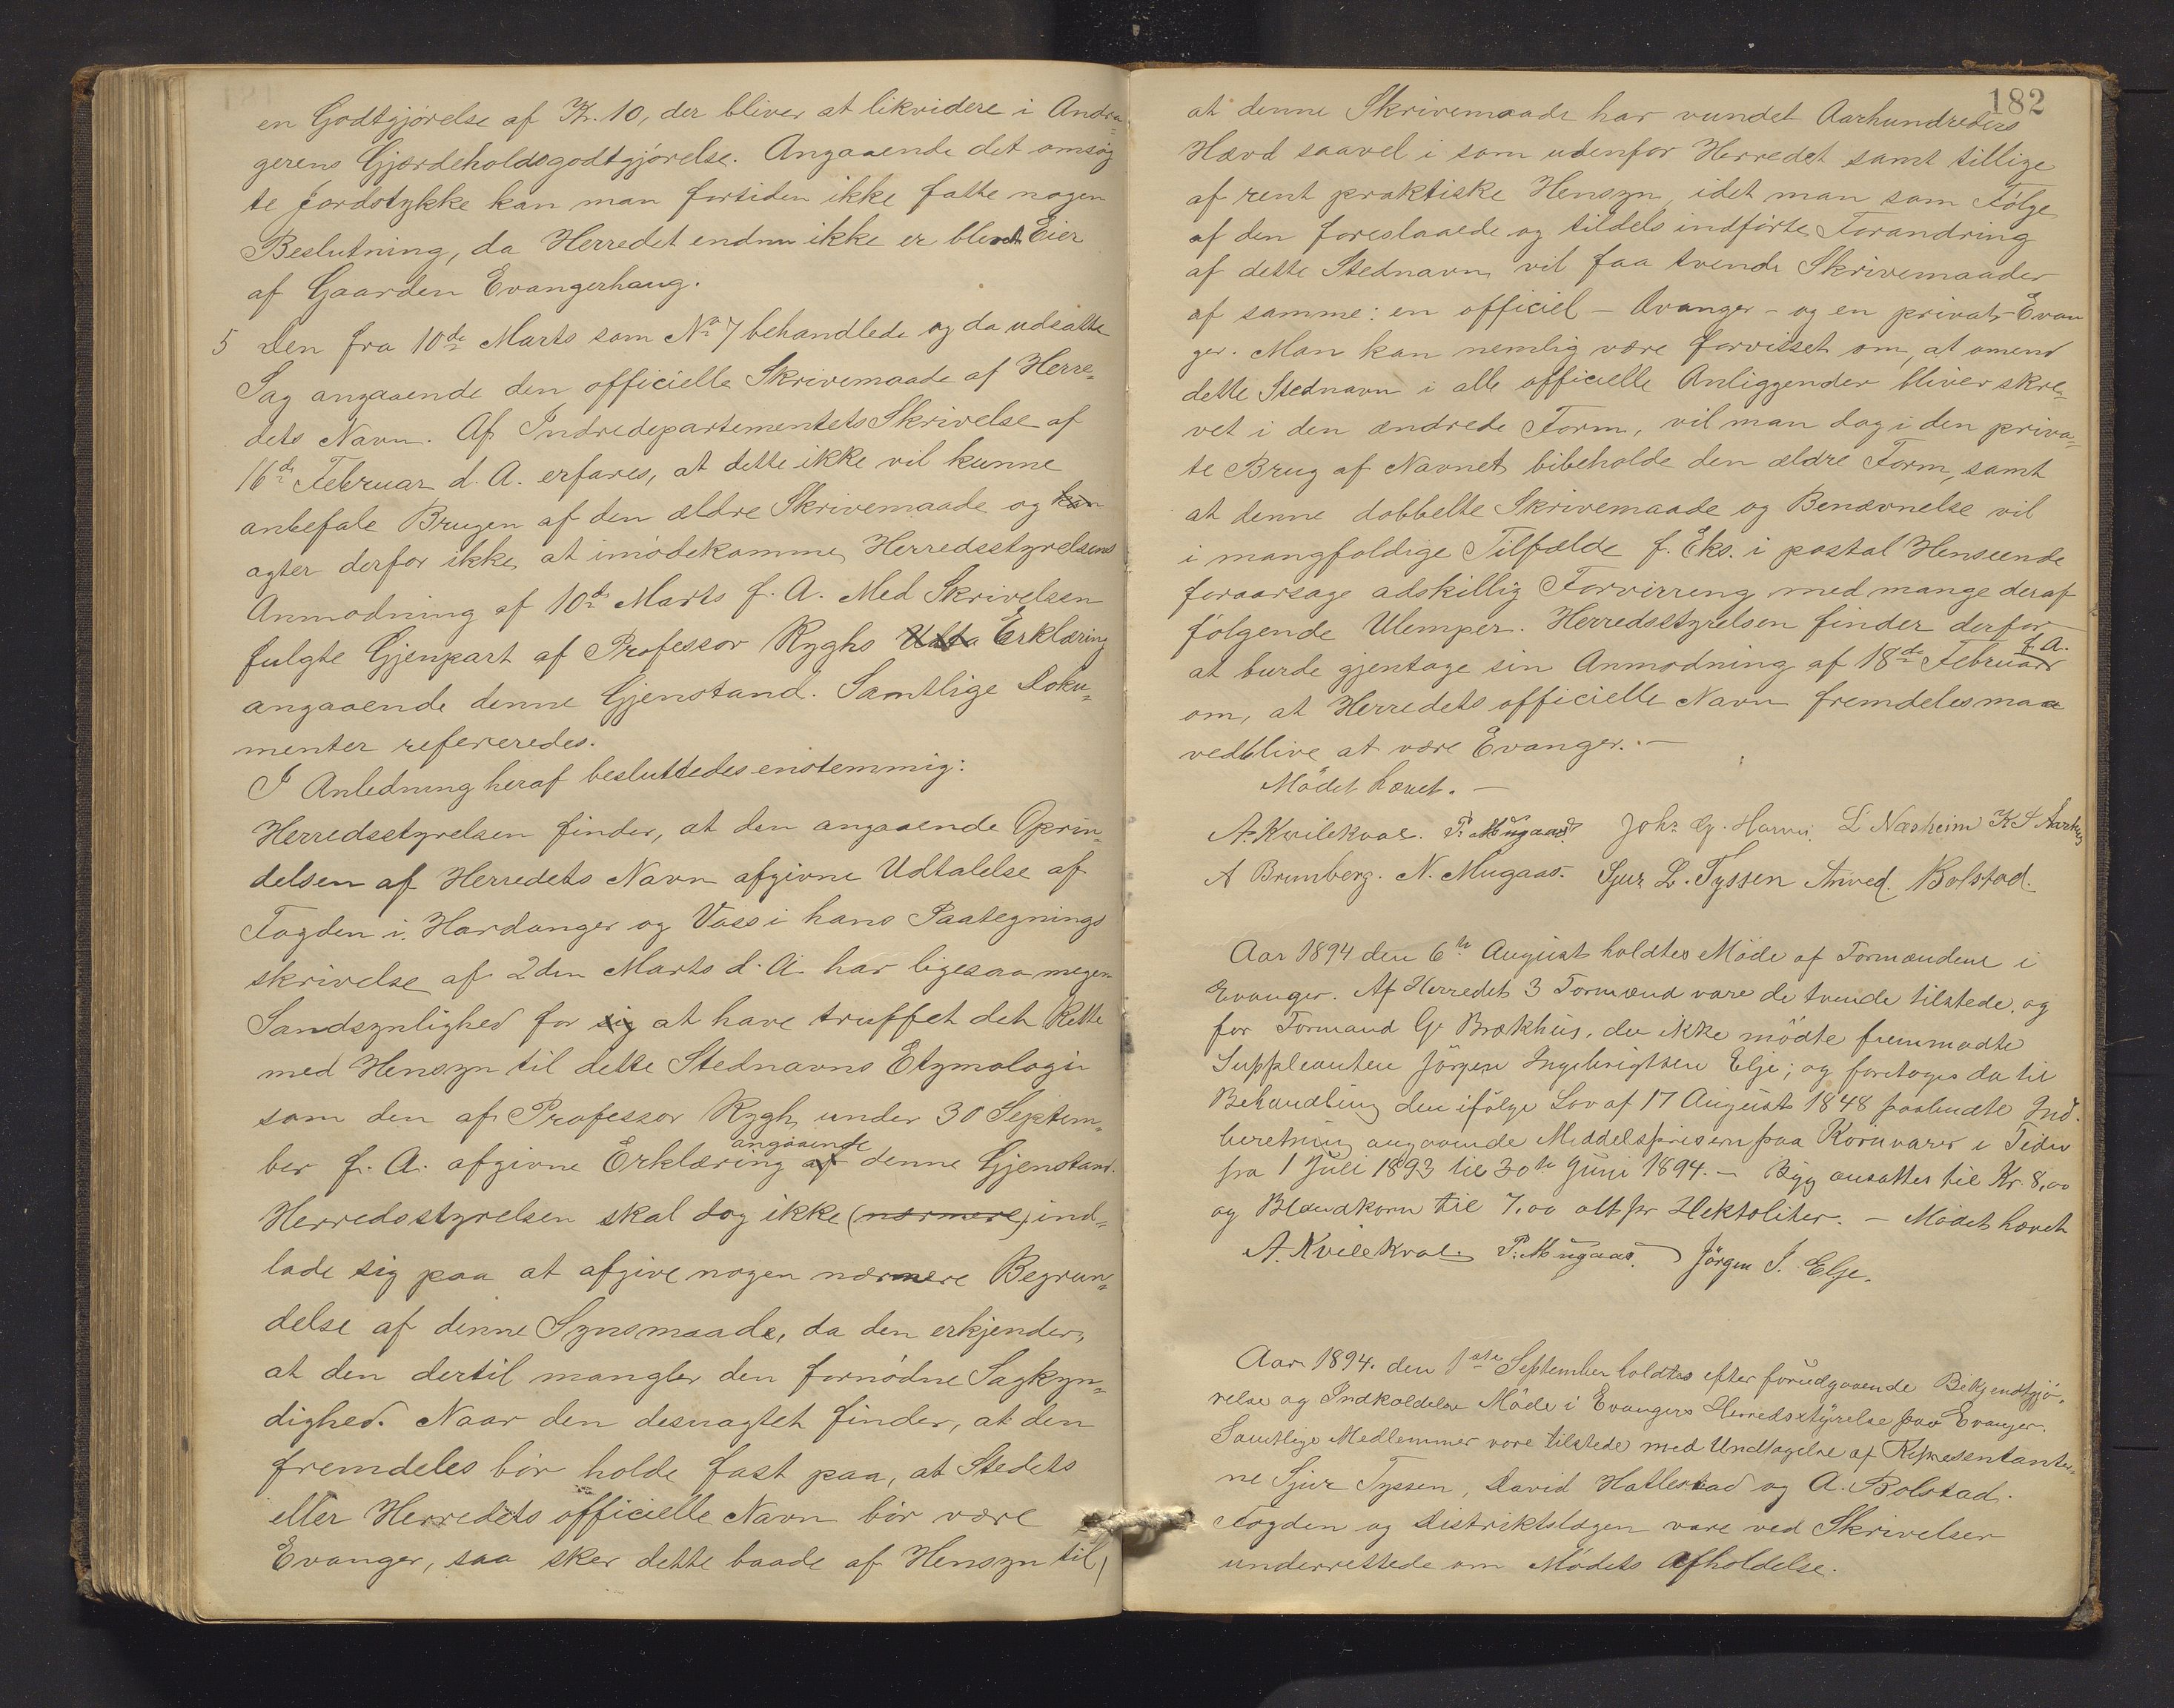 en Godtgjörelse af Kr. 10, der bliver at likvidere i Andra-
gerens Gjærdeholdsgodtgjörelse. Angaaende det omsög
te Jordstykke kan man fortiden ikke fatte nogen
Beslutning, da Herredet endnu ikke er blevet Eier
af Gaarden Evangerhaug.
5 Den fra 10de Marts som No 7 behandlede og da udsatte
Sag angaaende den officielle Skrivemaade af Herre-
dets Navn. Af Indredepartementets Skrivelse af
16de Februar d. A. erfares, at dette ikke vil kunne
anbefale Brugen af den ældre Skrivemaade og kan
agter derfor ikke at imödekomme Herredsstyrelsens
Anmodning af 10de Marts f. A. Med Skrivelsen
fulgte Gjenpart af Professor Ryghs Udta Erklæring
angaaende denne Gjenstand. Samtlige Doku-
menter refereredes.
I Anledning heraf besluttedes enstemmig:
Herredsstyrelsen finder, at den angaaende Oprin-
delsen af Herredets Navn afgivne Udtalelse af
Fogden i Hardanger og Voss i hans Paategnings
skrivelse af 2den Marts d. A. har ligesaa megen
Sandsynlighed for sig at have truffet det Rette
med Hensyn til dette Stednavns Etymologi
som den af Professor Rygh under 30 Septem-
ber f. A. afgivne Erklæring af angaaende denne Gjenstand.
Herredsstyrelsen skal dog ikke (nærmere) ind-
lade sig paa at afgive nogen nærmere Begrun-
delse af denne Synsmaade, da den erkjender,
at den dertil mangler den fornödne Sagkyn-
dighed. Naar den desuagtet finder, at den
fremdeles bör holde fast paa, at Stedets
eller Herredets officielle Navn bör være
Evanger, saa sker dette baade af Hensyn til,
182
at denne Skrivemaade har vundet Aarhundreders
Hævd saavel i som udenfor Herredet samt tillige
af rent praktiske Hensyn, idet man som Fölge
af den foreslaaede og tildels indförte Forandring
af dette Stednavn vil faa tvende Skrivemaader
af samme: en officiel - Vvanger - og en privat - Evan
ger. Man kan nemlig være forvisset om, at omend
dette Stednavn i alle officielle Anliggender bliver skre-
vet i den ændrede Form, vil man dog i den priva-
te Brug af Navnet bibeholde den ældre Form, samt
at denne dobbelte Skrivemaade og Benævnelse vil
i mangfoldige Tilfælde f. Eks. i postal Henseende
foraarsage adskillig Forvirring med mange deraf
fölgende Ulemper. Herredsstyrelsen finder derfor
at burde gjentage sin Anmodning af 18de Februar f. A.
om, at Herredets officielle Navn fremdeles maa
vedblive at være Evanger. -
Mödet hævet. -
A. Kvilekval. P. Mugaas. Joh. G. Horvei. L Næsheim K S Aarhus
A Brunborg. N. Mugaas. Sjur L. Tyssen Amved. Bolstad.
Aar 1894 den 6te August holdtes Möde af Formændene i
Evanger. Af Herredets 3 Formænd vare de tvende tilstede, og
for Formand G. Brækhus, der ikke mödte fremmödte
Suppleanten Jörgen Ingebrigtsen Elje; og foretoges da til
Behandling den ifölge Lov af 17 August 1848 paabudte Ind-
beretning angaaende Middelsprisen paa Kornvarer i Tiden
fra 1 Juli 1893 til 30te Juni 1894. - Byg ansattes til Kr. 8,00
og Blandkorn til 7,00 alt pr Hektoliter. - Mödet hævet
A. Kvilekval. P. Mugaas. Jörgen I. Elje.
Aar 1894. den 1ste September holdtes efter forudgaaende Bekjendtgjö-
relse og Indkaldelse Möde i Evangers Herredsstyrelse paa Evanger.
Samtlige Medlemmer vare tilstede med Undtagelse af Repræsentanter-
ne Sjur Tyssen, David Hatlestad og A. Bolstad.
Fogden og Distriktslægen vare ved Skrivelser
underrettede om Mödets Afholdelse.